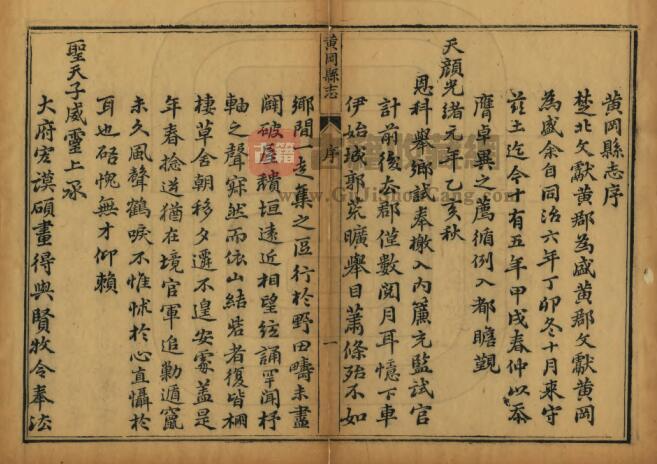 黄岡縣志序
楚北文獻黄郡為盛黄郡文獻黄岡
為盛余自同治六年丁卯冬十月来守
茲土迄今十有五年甲戌春仲以忝
膺卓異之薦循例入都瞻覲
天顔光緒元年乙亥秋
恩科舉鄉試奉檄入内簾充監試官
計前後去郡僅數閲月耳憶下車
伊始城郭荒曠舉目蕭條殆不如
黄岡縣志
序
一
鄉間一走集之區行於野田疇未盡
闢破屋穨垣遠近相望絃誦罕聞杼
軸之聲寂然而依山結砦者復皆柵
棲草舍朝移夕遷不遑安處盖是
年春捻逆猶在境官軍追勦遁竄
未久風聲鶴唳不惟怵於心直懾於
耳也硌愧無才仰賴
聖天子威靈上承
大府宏謨碩畫得與賢牧令奉法
古籍
www.GuJiShouCang.com